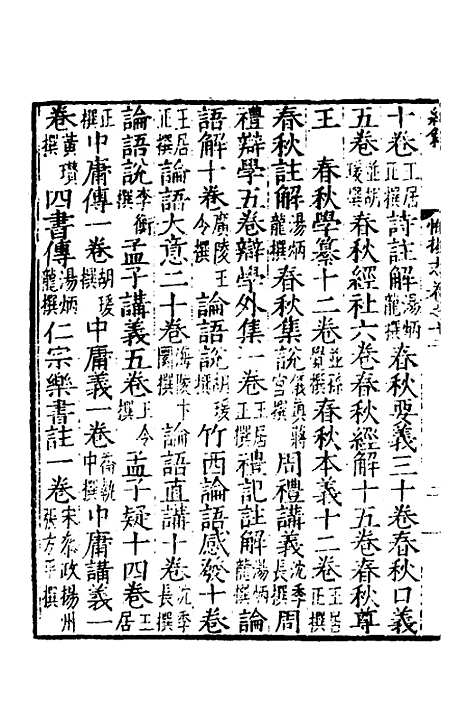 十卷王居正撰詩註解湯炳龍撰春秋要義三十卷春秋口義
五卷並胡瑗撰春秋經社六卷春秋經解十五卷春秋尊
王　春秋學纂十二卷並孫覺撰春秋本義十二卷王居正撰
春秋註解湯炳龍撰春秋集說儀真蔣宮撰周禮講義沈季長撰周
禮辯學五卷辯學外集一卷王居正撰禮記註解湯炳龍撰論
語解十卷廣陵王令撰論語說胡瑗撰竹西論語感發十卷
王居正撰論語大意二十卷海陵卞圜撰論語直講十卷沈季長撰
論語說李衡撰孟子講義五卷王令撰孟子疑十四卷王居
正撰中庸傳一卷胡瑗撰中庸義一卷喬執中撰中庸講義一
卷黃瓚撰四書傳湯炳龍撰仁宗樂書註一卷宋參政揚州張方平撰